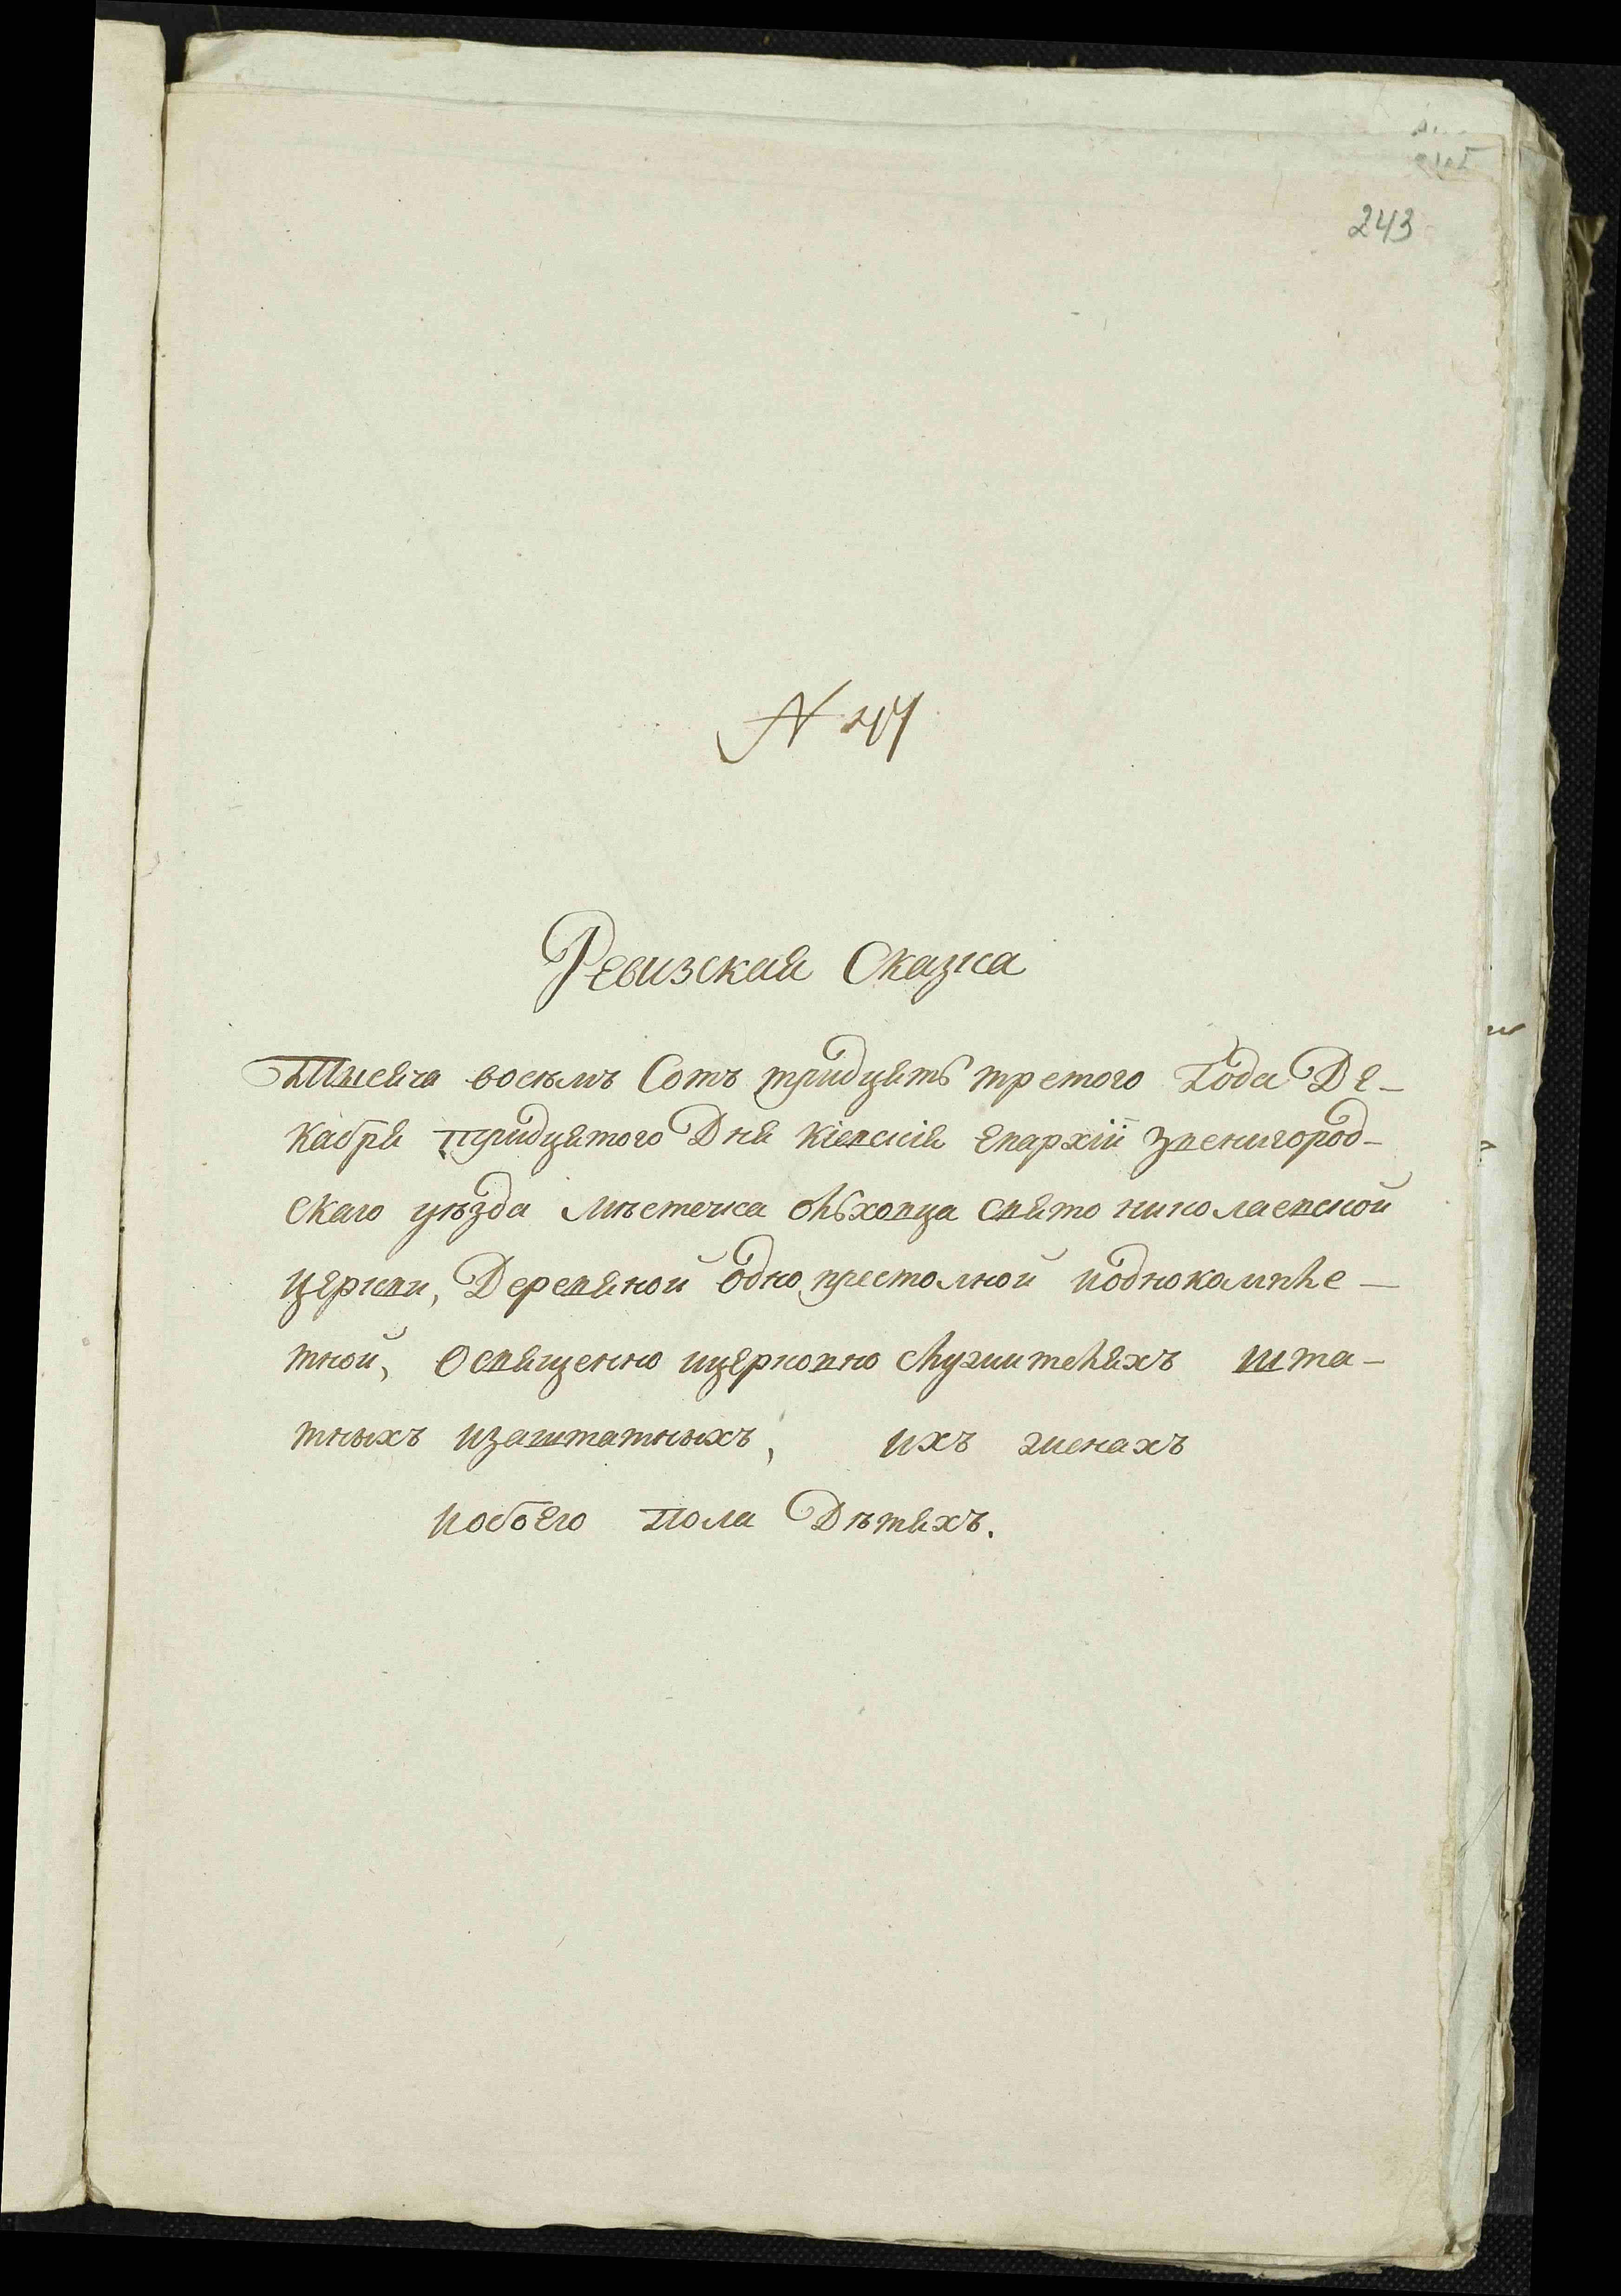 243
N 47
Ревизская Сказка
Тысяча восѣмъ Сотъ тридцять третого Года Де-
кабря тридцятого Дня Кіевскія Епархіи Звенигород-
скаго уѣзда Мѣстечка Ольховца Свято николаевской
церкви, Деревяной Одно престолной иоднокомпле-
тной, Освященно ицерковно служителяхъ шта-
тныхъ изаштатныхъ, ихъ женахъ
иобоего пола Дѣтяхъ.